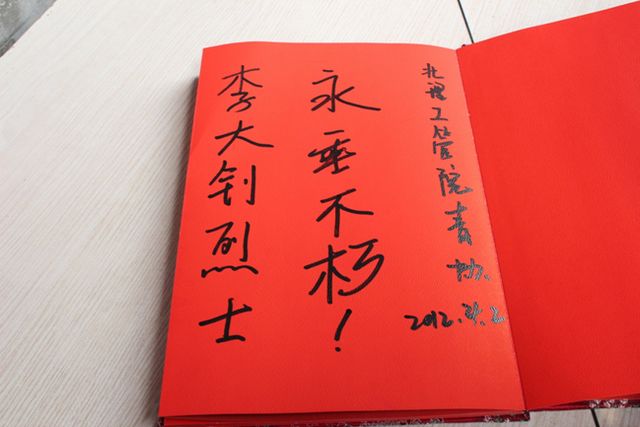 李大钊烈士
永垂不朽！
北理工管院青协
2012.